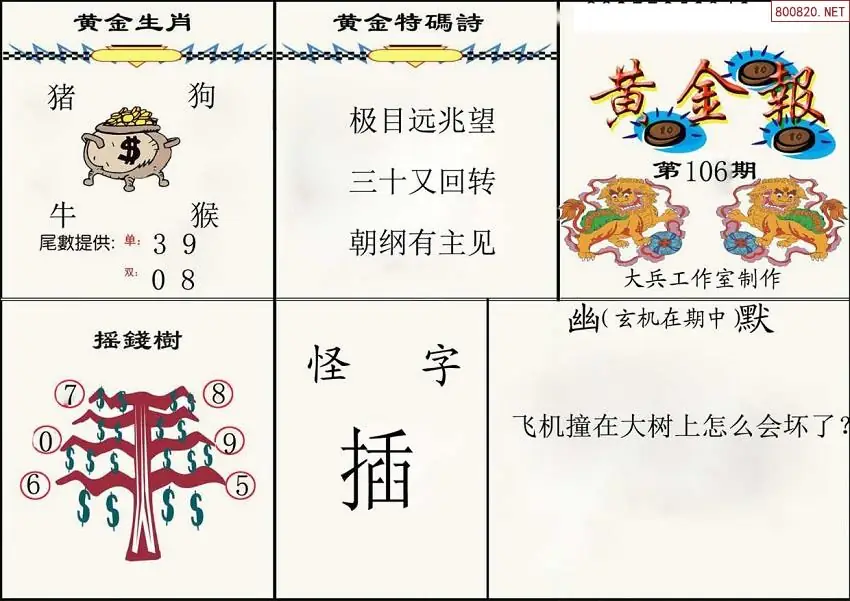 800820.NET
黄金生肖
猪 狗
$
牛 猴
尾數提供: 单: 3 9
双: 0 8
黄金特碼詩
极目远兆望
三十又回转
朝纲有主见
黄金報
10
10
10
第106期
大兵工作室制作
摇錢樹
7 8
0 9
6 5
$ $ $ $
$ $ $ $
$ $ $ $
$ $ $ $
怪 字
插
幽(玄机在期中)默
飞机撞在大树上怎么会坏了?